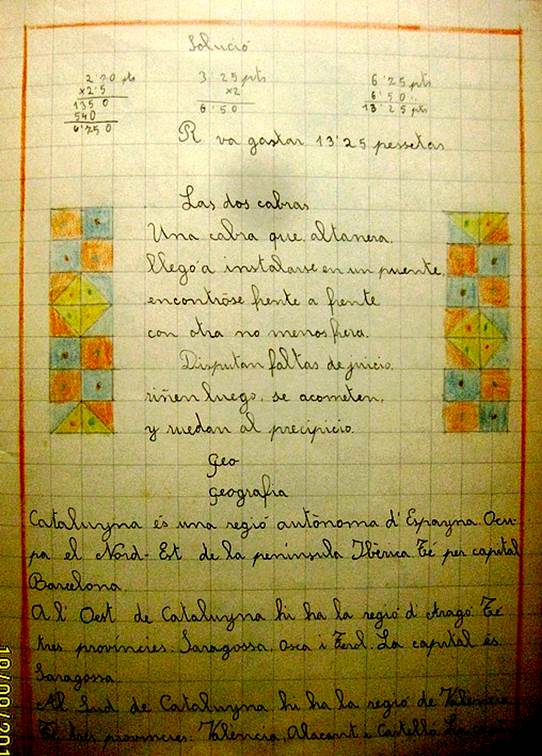 Solució
2'70 pts 3'25 pts 6'25 pts
×2'5 ×2 6'50
1350 6'50 13'25 pts
540
6'750
R va gastar 13'25 pessetas
Las dos cabras
Una cabra que, altanera,
llegó a instalarse en un puente,
encontróse frente a frente
con otra no menos fiera.
Disputan faltas de juicio,
riñen luego, se acometen,
y ruedan al precipicio.
Geo
Geografia
Cataluyna és una regió autònoma d'Espayna. Ocu-
pa el Nord-Est de la península Ibèrica. Té per capital
Barcelona.
A l'Oest de Cataluyna hi ha la regió d'Aragó. Té
tres províncies: Saragossa, Osca i Terol. La capital és
Saragossa.
Al Sud de Cataluyna hi ha la regió de València
Té tres províncies: València, Alacant i Castelló. La